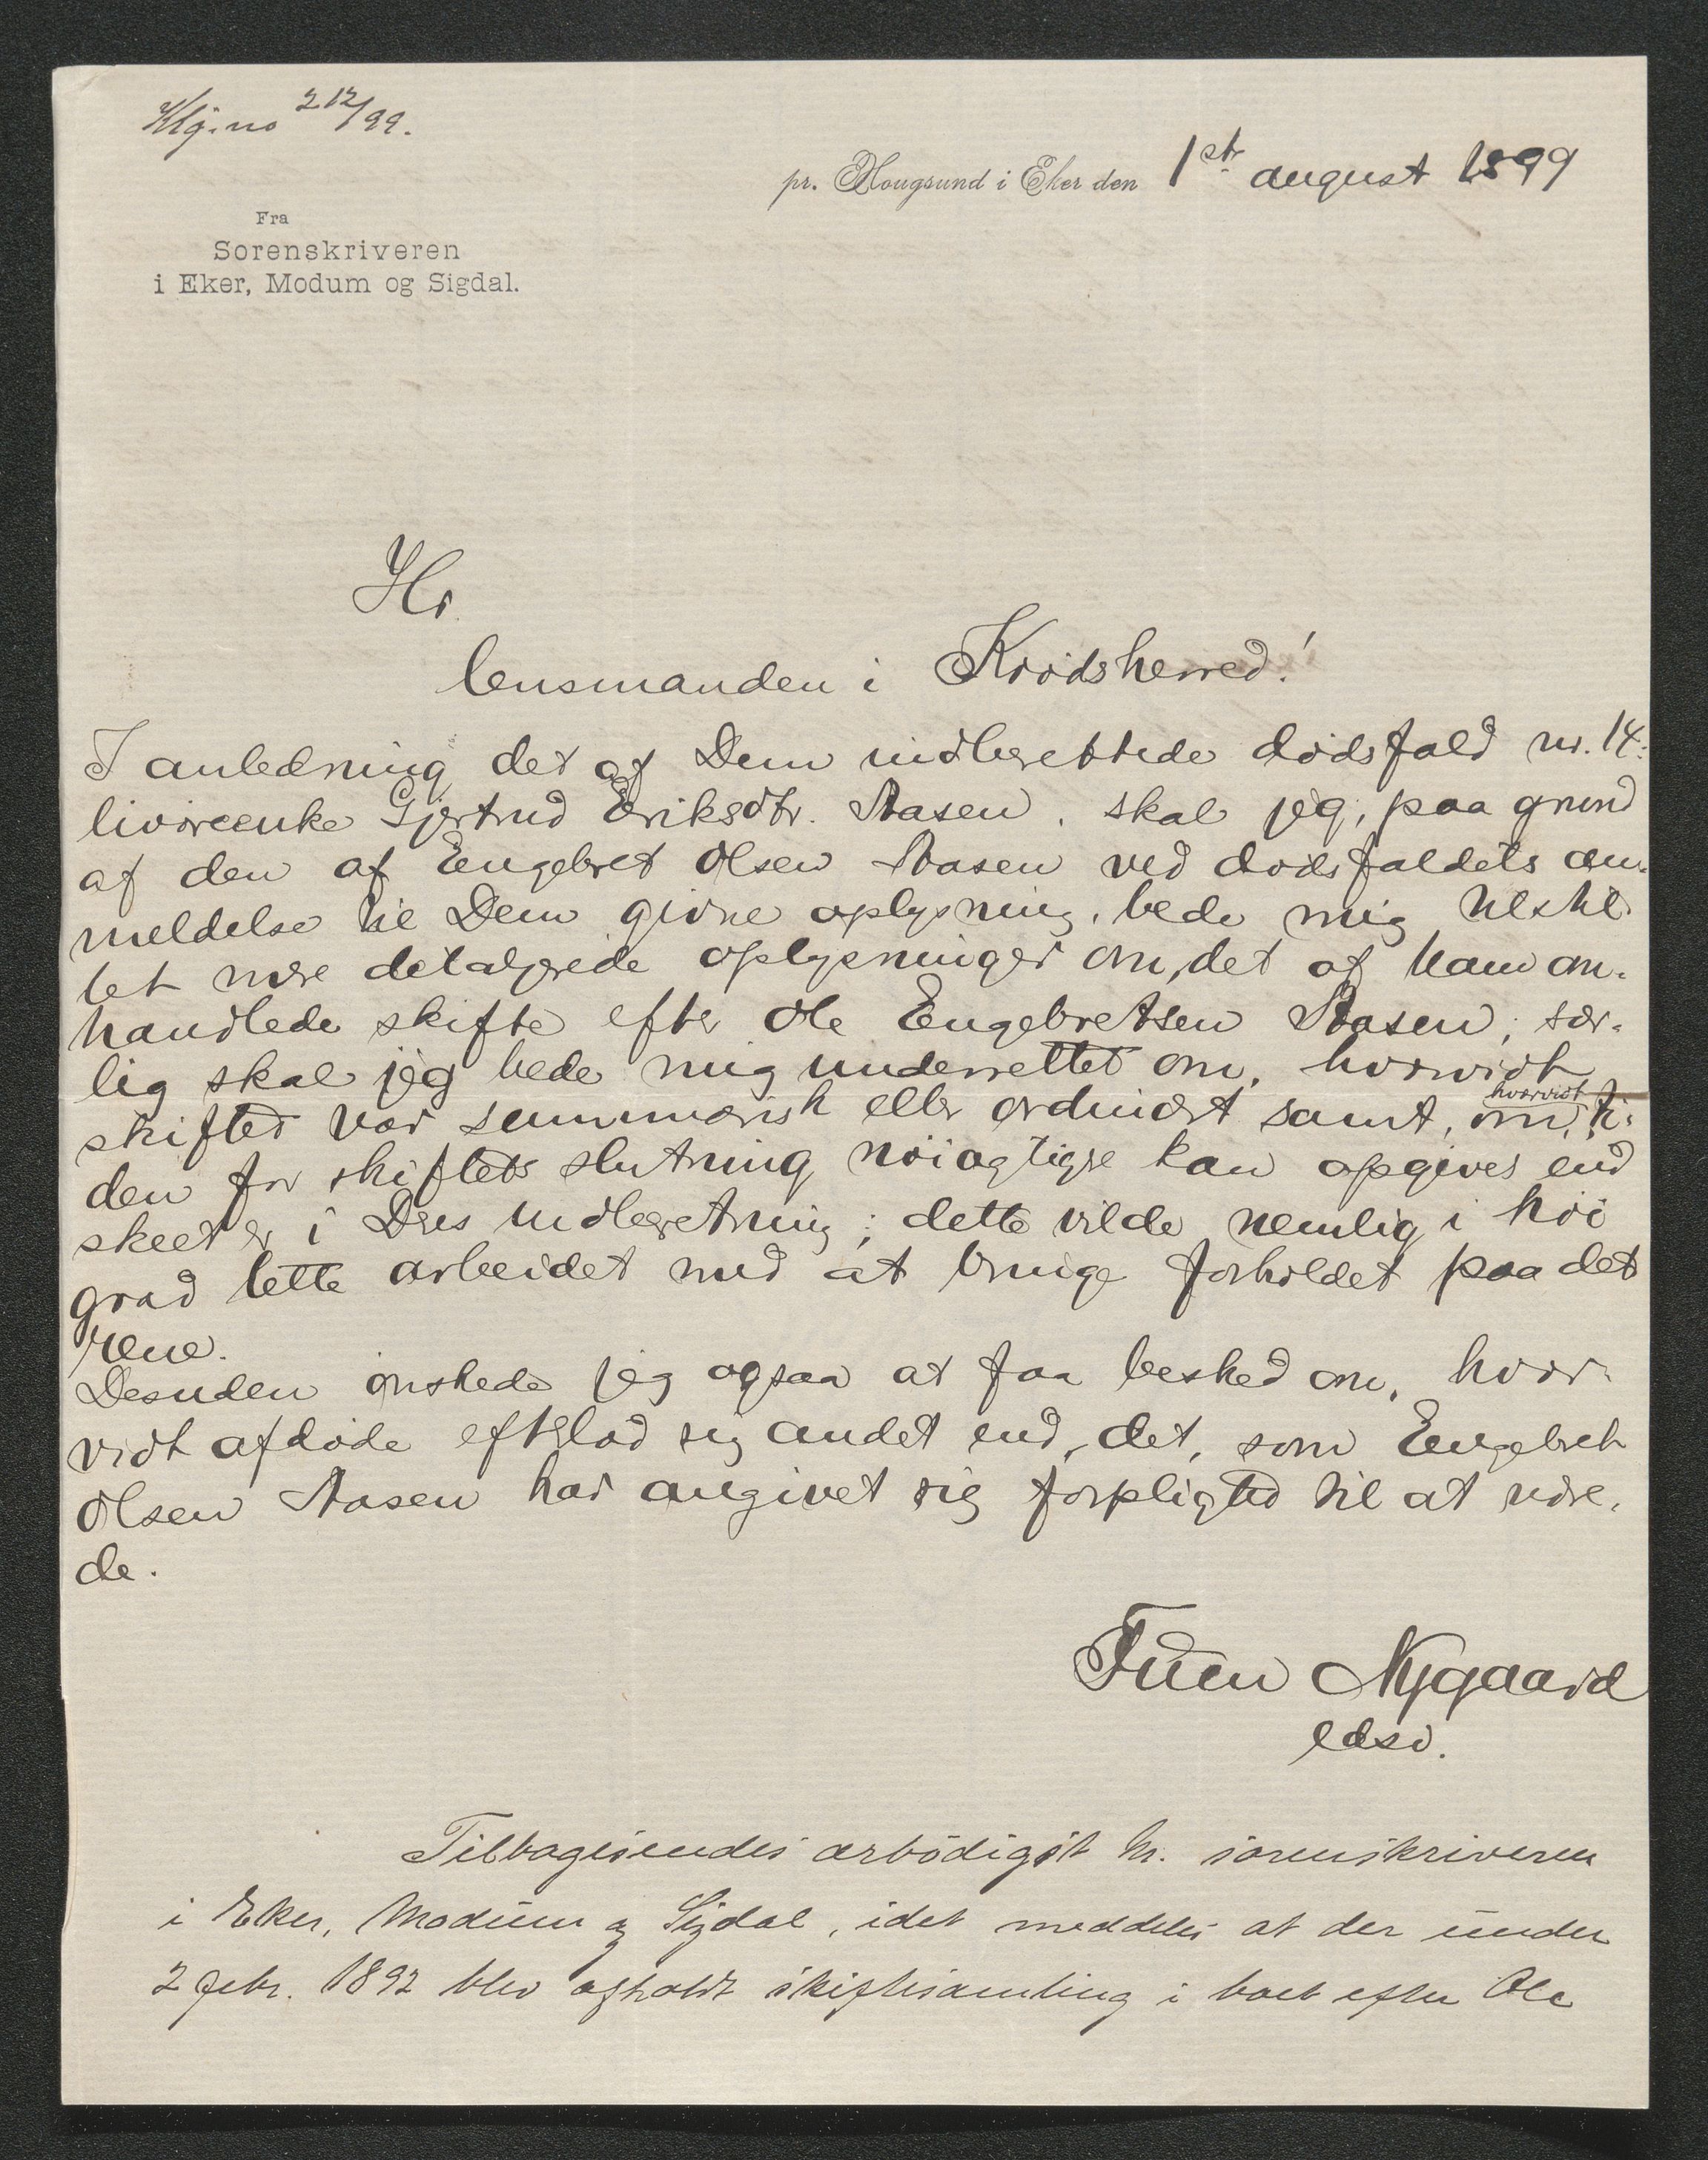 Kfg. no 212/99.
pr. Hougsund i Eker den 1ste august 1899
Fra
Sorenskriveren
i Eker, Modum og Sigdal.
Hr
lensmanden i Krødsherred!
I anledning det af Dem indberettede dødsfald nr. 14:
livøreenke Gjertrud Eriksdtr. Aasen, skal jeg, paa grund
af den af Engebret Olsen Aasen ved dødsfaldets an-
meldelse til Dem givne oplysning, bede mig tilstil-
let mere detaljerede oplysninger om, det af ham om-
handlede skifte efter Ole Engebretsen Aasen; sær-
lig skal jeg bede mig underrettet om, hvorvidt
skiftet var summarisk eller ordinært samt, om, hvorvidt ti-
den for skiftets slutning nøiagtigre kan opgives end
skeet er i Deres indberetning; dette vilde nemlig i høi
grad lette arbeidet med at bringe forholdet paa det
rene.
Desuden ønskede jeg ogsaa at faa besked om, hvor-
vidt afdøde efterlod sig andet end, det, som Engebret
Olsen Aasen har angivet sig forpligtet til at udre-
de.
Nygaard
edsv.
Tilbagesendes ærbødigst hr. sorenskriveren
i Eker, Modum og Sigdal, idet meddeles at der under
2 febr. 1892 blev afholdt skiftesamling i boet efter Ole